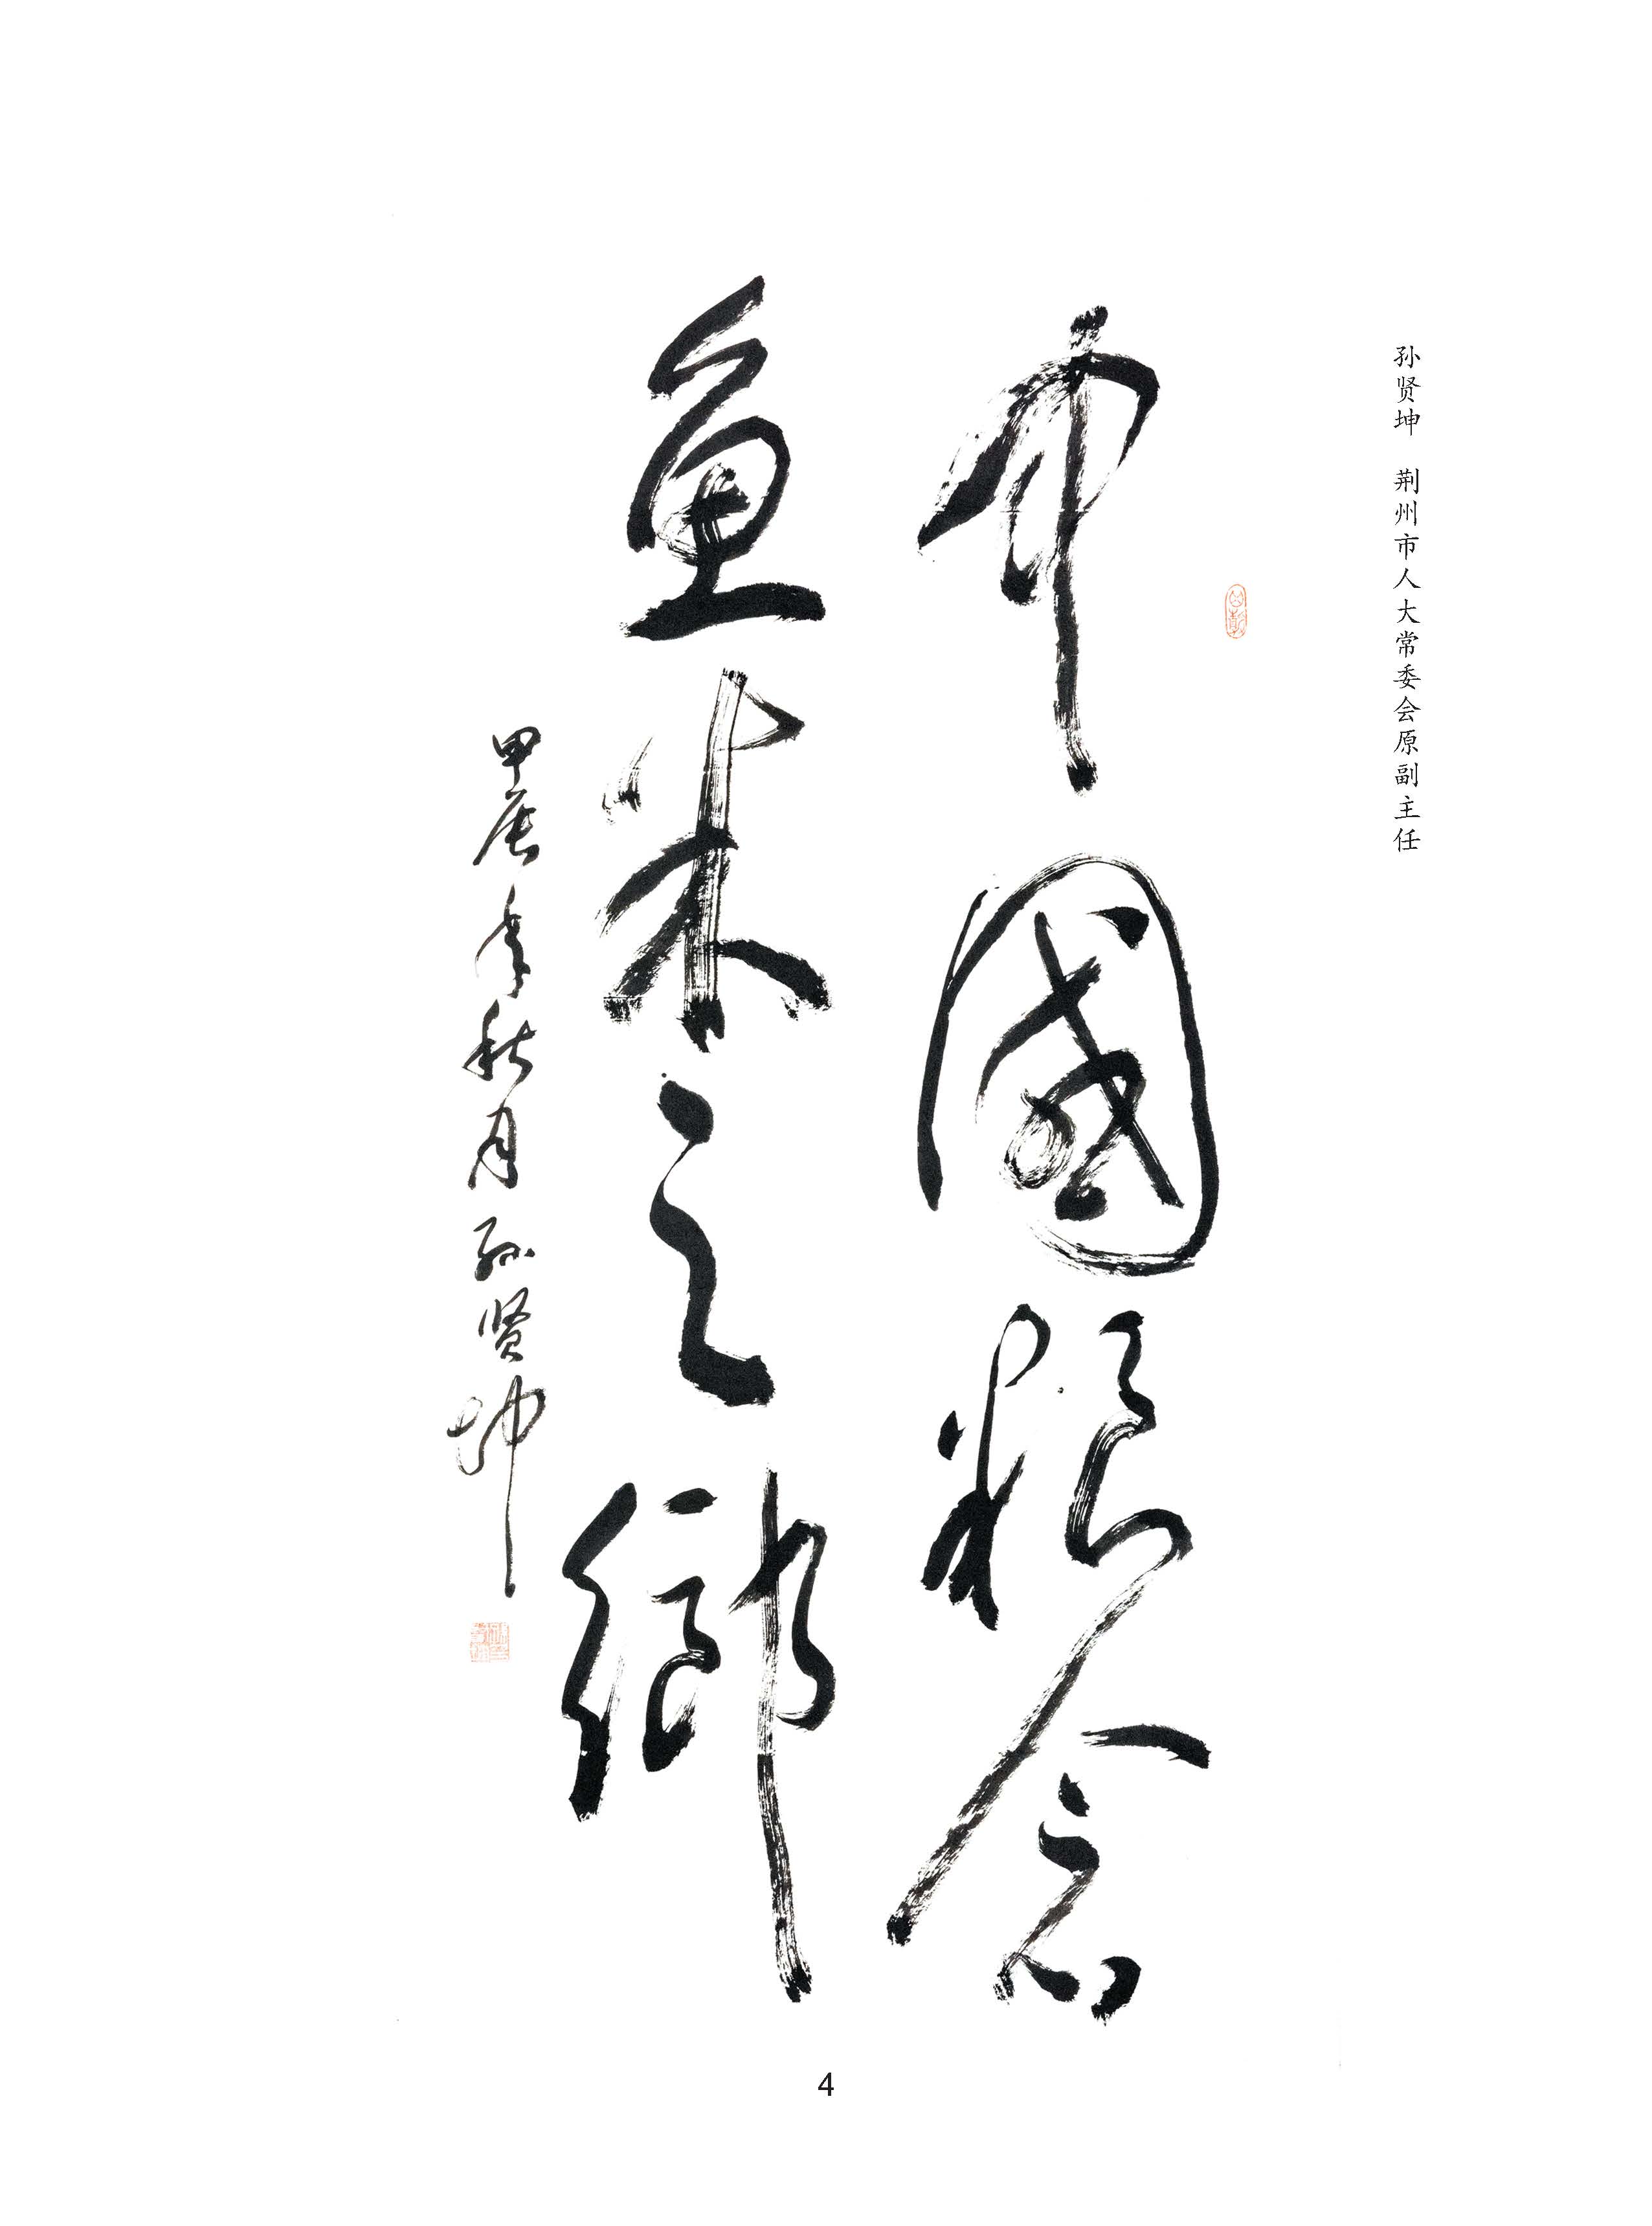 孙贤坤 荆州市人大常委会原副主任
中國粮倉
鱼米之鄉
甲辰年秋月孙贤坤
4